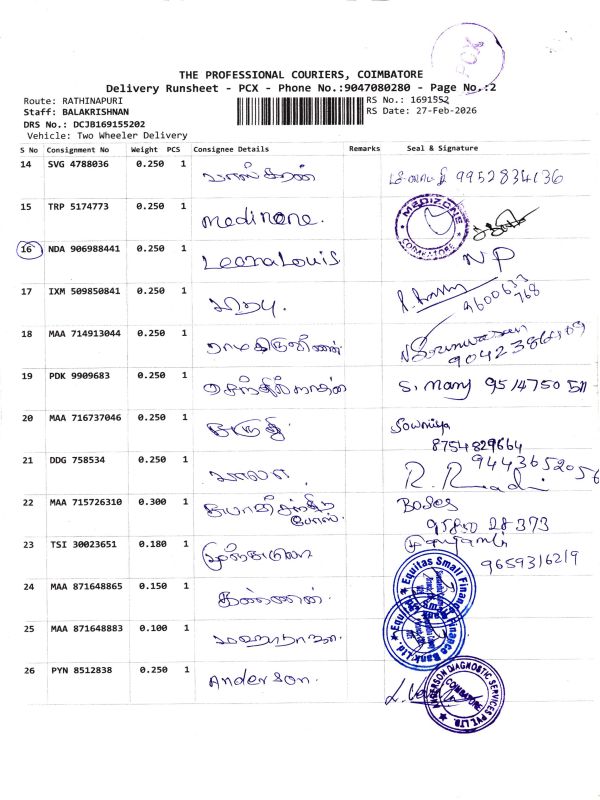 PCX
THE PROFESSIONAL COURIERS, COIMBATORE
Delivery Runsheet - PCX - Phone No.:9047080280 - Page No.:2
Route: RATHINAPURI
RS No.: 1691552
Staff: BALAKRISHNAN
RS Date: 27-Feb-2026
DRS No.: DCJB169155202
Vehicle: Two Wheeler Delivery
S No Consignment No Weight PCS Consignee Details Remarks Seal & Signature
14 SVG 4788036 0.250 1 9952834136
15 TRP 5174773 0.250 1 Medinone. MEDIZONE COIMBATORE
16 NDA 906988441 0.250 1 LeenaLouis NP
17 IXM 509850841 0.250 1 9600633
768
18 MAA 714913044 0.250 1 N Srinivasan
19 PDK 9909683 0.250 1 செந்தில்நாதன் S. Mary
20 MAA 716737046 0.250 1 Sowmiya
8754829664
21 DDG 758534 0.250 1 பாலா 9443652056
22 MAA 715726310 0.300 1 போஸ்.
23 TSI 30023651 0.180 1 9659316219
24 MAA 871648865 0.150 1 கண்ணன். Equitas Small Finance Bank Ltd.
25 MAA 871648883 0.100 1 Equitas Small Finance Bank Ltd.
26 PYN 8512838 0.250 1 Anderson. ANDERSON DIAGNOSTIC SERVICES PVT. LTD. COIMBATORE